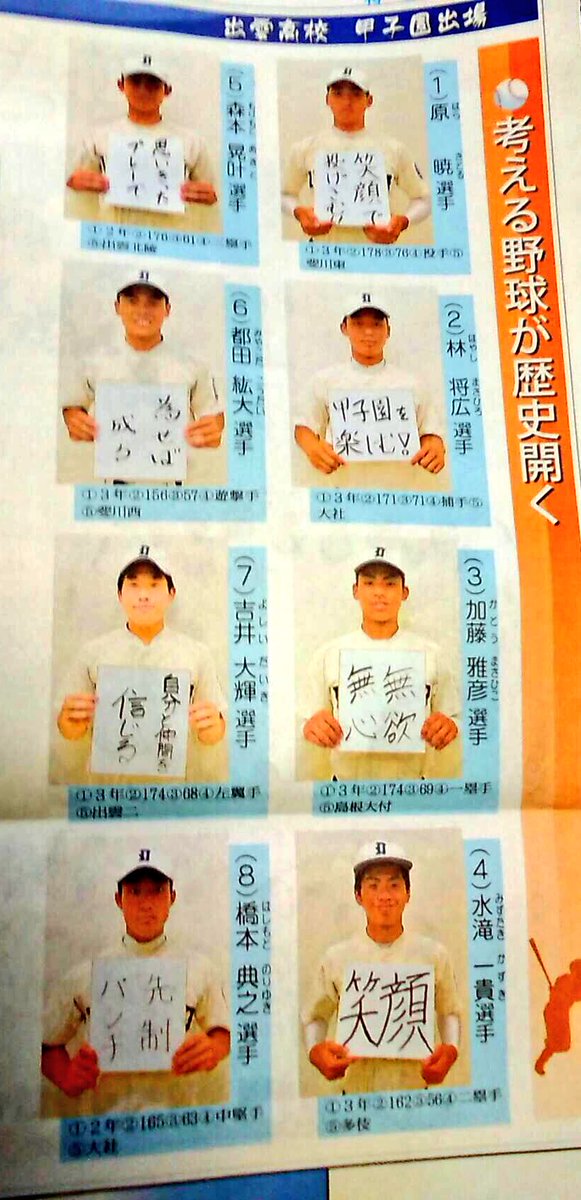 出雲高校 甲子園出場
考える野球が歴史開く
(1)原 暁選手
はら さとる
笑顔で
投げこむ!
①3年②178③76④投手⑤
斐川東
(2)林 将広選手
はやし まさひろ
甲子園を
楽しむ!
①3年②171③71④捕手⑤
大社
(3)加藤 雅彦選手
かとう まさひこ
無欲
無心
①3年②174③69④一塁手
⑤島根大付
(4)水滝 一貴選手
みずたき かずき
笑顔
①3年②162③56④二塁手
⑤多伎
(5)森本 晃叶選手
思いきった
プレーで
①2年②170③61④三塁手
(6)都田 紘大選手
みやこだ こうだい
為せば
成る
①3年②156③57④遊撃手
⑤斐川西
(7)吉井 大輝選手
よしい だいき
自分と仲間を
信じる
①3年②174③68④左翼手
⑤出雲二
(8)橋本 典之選手
はしもと のりゆき
先制
パンチ
①2年②165③63④中堅手
⑤大社